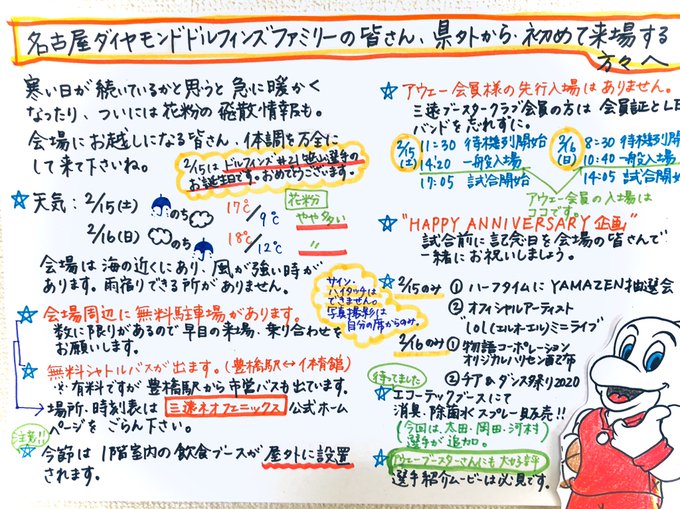 名古屋ダイヤモンドドルフィンズファミリーの皆さん、県外から初めて来場する
方々へ
寒い日が続いているかと思うと急に暖かく
なったり、ついには花粉の飛散情報も。
会場にお越しになる皆さん、体調を万全に
して来て下さいね。
2/15は ドルフィンズ#21 笹山選手の
お誕生日です。おめでとうございます。
☆天気:2/15(土) のち 17℃/9℃
2/16(日) のち 18℃/12℃
花粉
やや多い
〃
会場は海の近くにあり、風が強い時が
あります。雨宿りできる所がありません。
☆会場周辺に無料駐車場があります。
数に限りがあるので早目の来場、乗り合わせを
お願いします。
☆無料シャトルバスが出ます。(豊橋駅↔体育館)
※有料ですが豊橋駅から市営バスも出ています。
場所、時刻表は 三遠ネオフェニックス 公式ホーム
ページをごらん下さい。
注意!!
☆今節は1階室内の飲食ブースが屋外に設置
されます。
サイン、
ハイタッチは
できません。
写真撮影は
自分の席からのみ。
☆アウェー会員様の先行入場はありません。
三遠ブースタークラブ会員の方は会員証とLE
バンドを忘れずに。
2/15(土) 11:30 待機列開始
14:20 一般入場
17:05 試合開始
2/16(日) 8:30 待機列開
10:40 一般入場
14:05 試合開始
アウェー会員の入場は
ココです。
☆"HAPPY ANNIVERSARY企画"
試合前に記念日を会場の皆さんで
一緒にお祝いしましょう。
☆2/15のみ ①ハーフタイムにYAMAZEN抽選会
②オフィシャルアーティスト
lol(エルオーエル)ミニライブ
2/16のみ ①物語コーポレーション
オリジナルハリセン配布
②チア&ダンス祭り2020
待ってました
☆エコーテックブースにて
消臭・除菌水スプレー販売!!
(今回は、太田・岡田・河村
選手が追加。)
☆アウェーブースターさんにも大好評
選手紹介ムービーは必見です。